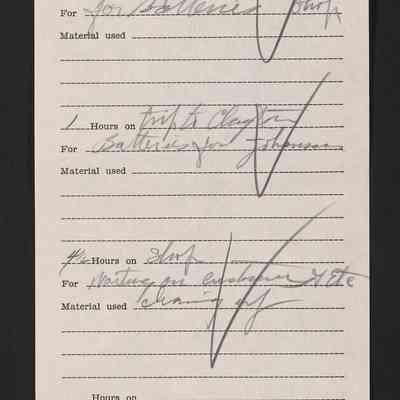 For for Batteries Shop
Material used
1 Hours on trip to Clayton
For Batteries for Johnson
Material used
4½ Hours on Shop
For Waiting on customer & Etc
Material used cleaning up
Hours on